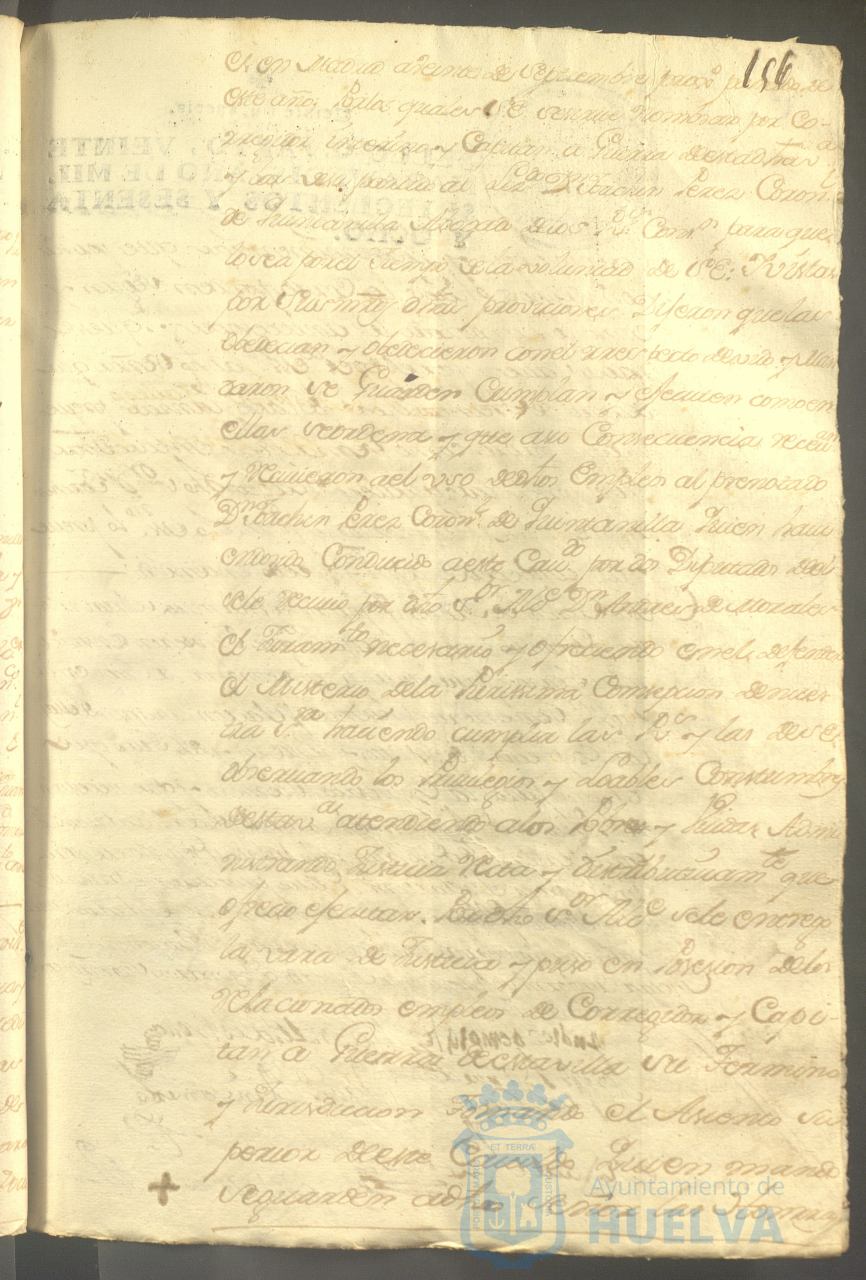 156
en Madrid a Veinte de Septiembre proxº passado de
este año, Por los quales S.E. se sirve Nombrar por Co-
rrexidor interino y Capitan a Guerra de esta dha Vª
y su partido al Lizdo Dn Joachin Perez Coronl
de Quintanilla Abogado de los Rs Consos para que
lo sea por el tiempo de la voluntad de S.E. Vistas
por sus mrds dhas proviciones, Dijeron que las
obedecian y obedecieron con el respecto devido y Man-
daron se Guarden Cumplan y executen como en
ellas se ordena y que a su Consecuencia
y Recivieron a el uso de dhos Empleos al prenotado
Dn Joachin Perez Coronl de Quintanilla Quien havi-
endo Conducido a este Cavdo por dos Diputados de el
se le recivio por dho Sor Alce Dn Andres de Morales
el Juramto necesario y ofreciendo en el defender
el Misterio de la Purissima Consepcion de nues-
tra Sra haciendo cumplir las Rs y las de S.E.
observando los Privilegios y Loables Constumbres
de esta Va atendiendo a los Pobres y Viudas Admi-
nistrando Justicia Recta y distributivamte que
ofrecio ejecutar. Por dho Sor Alce se le entrego
la vara de Justicia y puso en Posesion de los
Relacionados empleos de Corregidor y Capi-
tan a Guerra de esta Villa su Termino
y Jurisdiccion Tomando el Asiento su-
perior de este Cavildo Quien mando
se guarden a dho Señor las Honrras
POR TUS MARIS ET TERRAE CUSTODIA
Ayuntamiento de
HUELVA